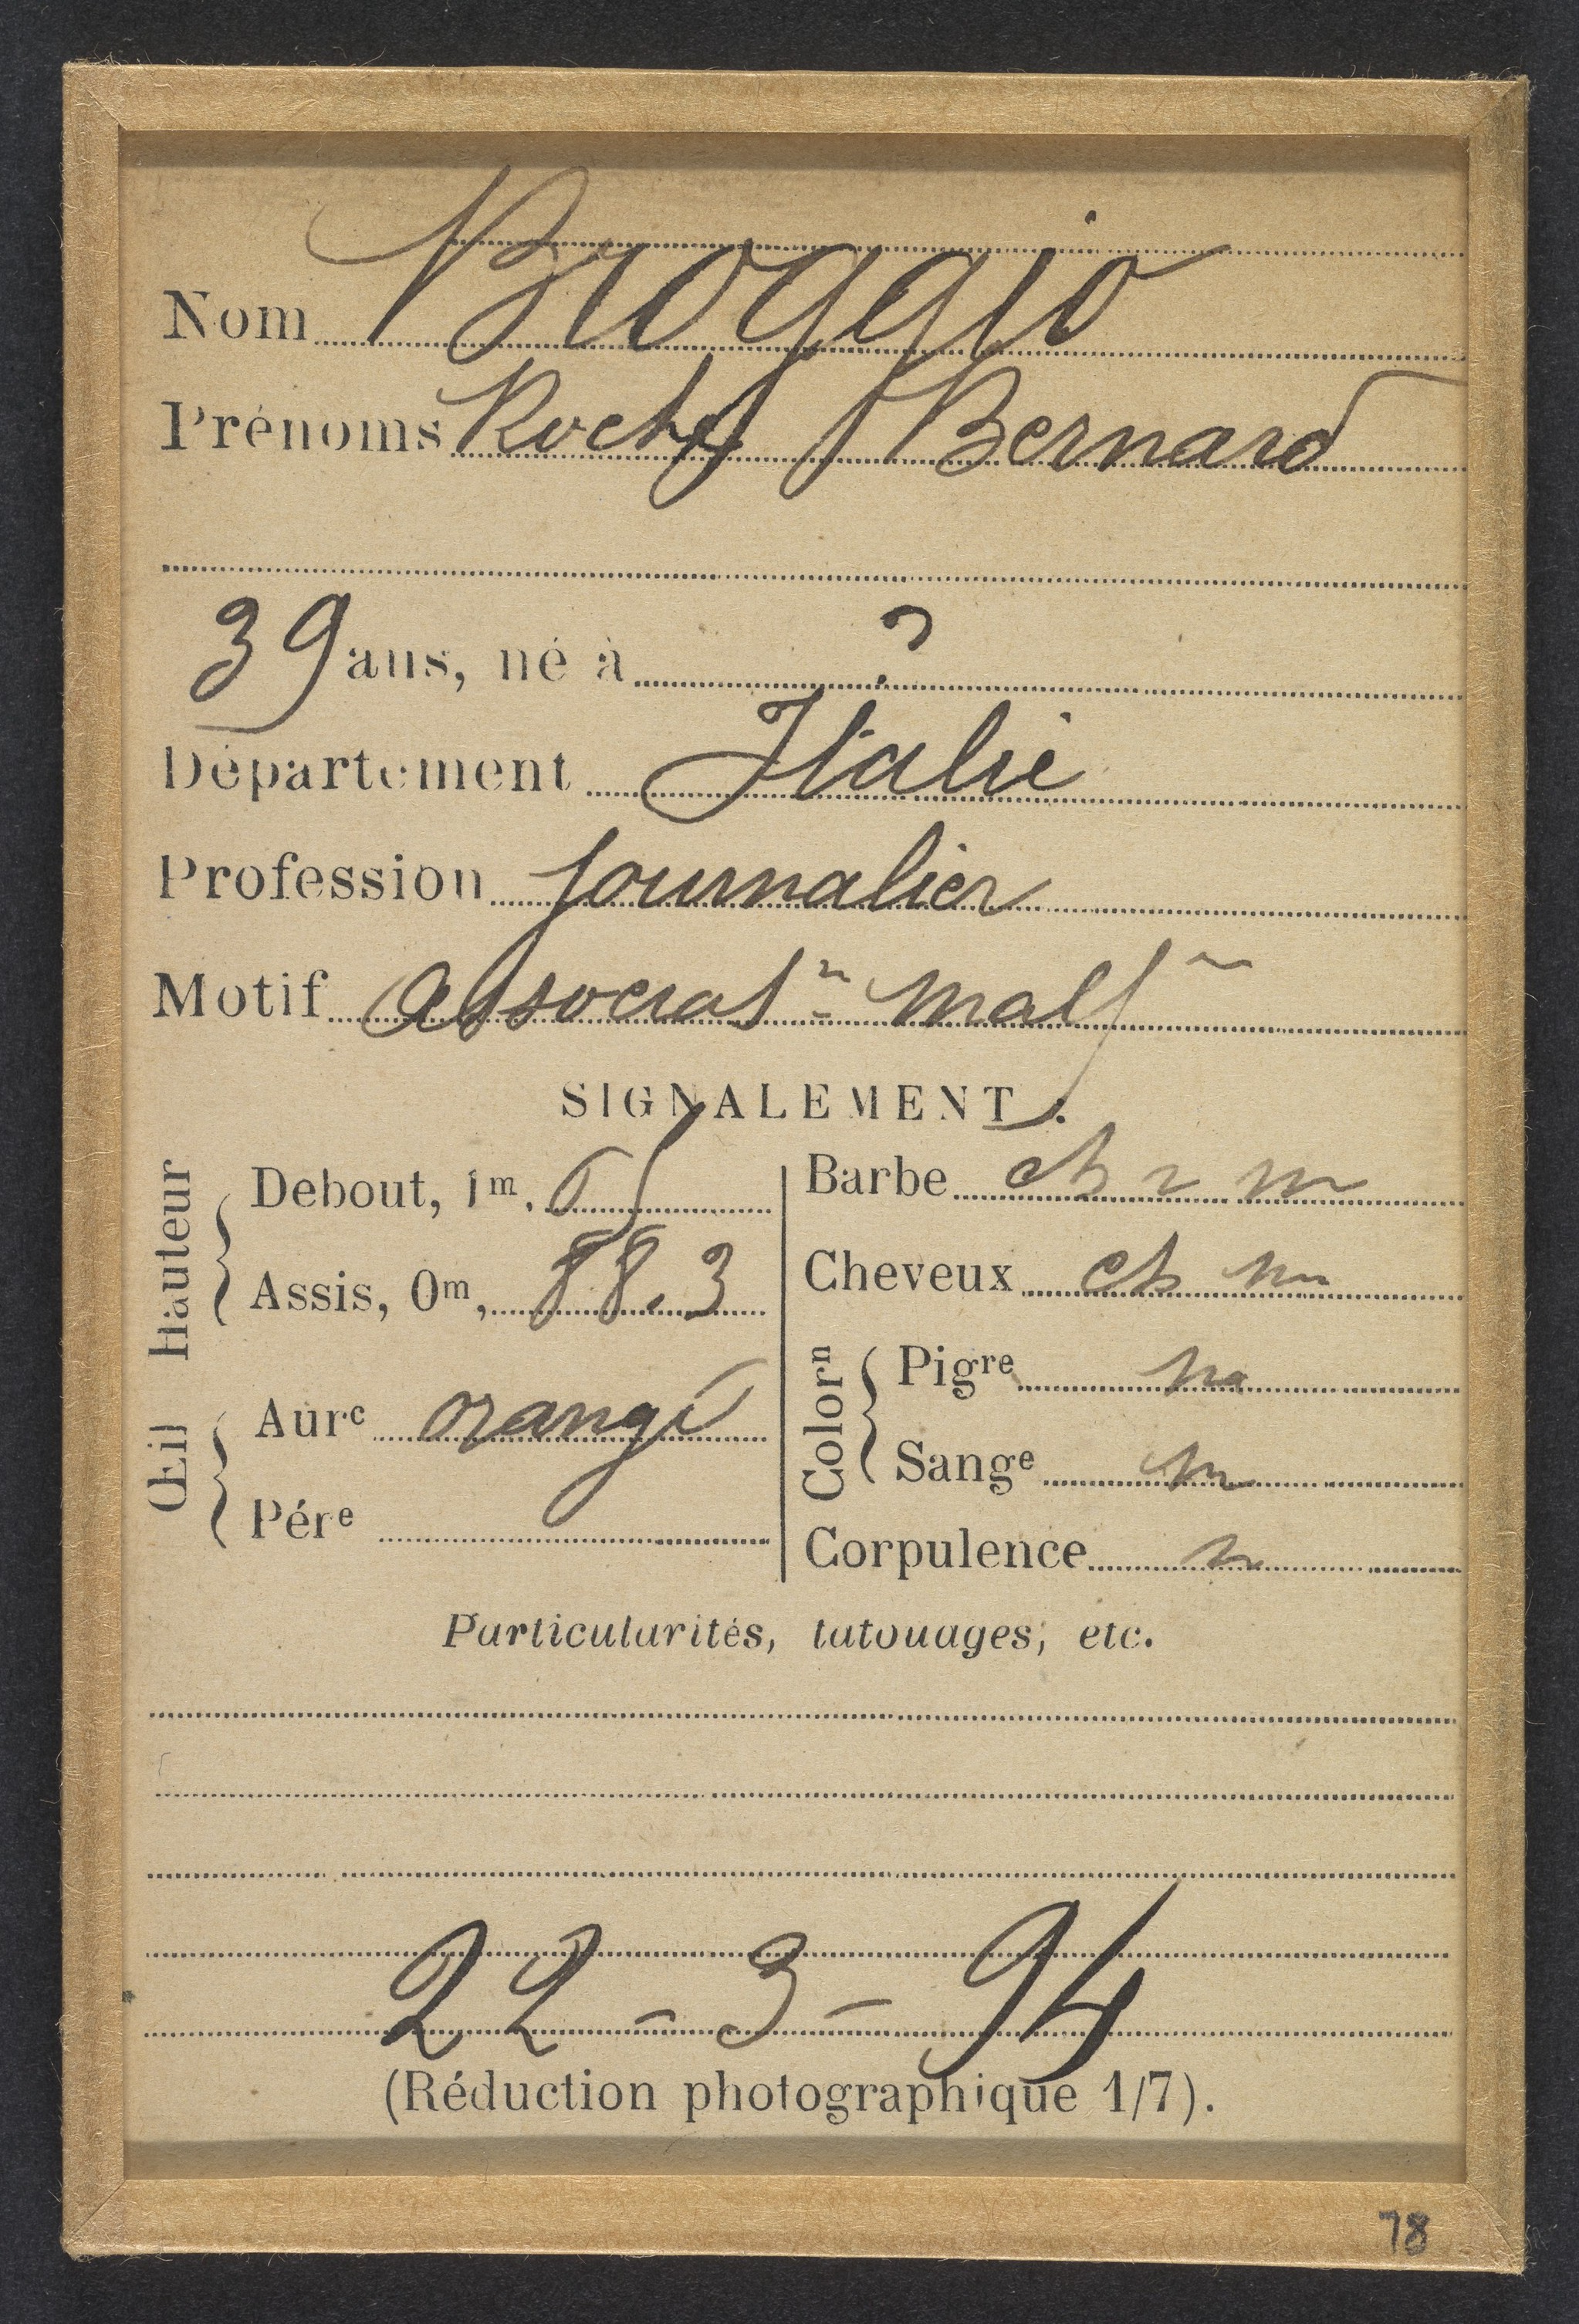 Nom Broggio
Prénoms Roch, Bernard
39 ans, né à ?
Département Italie
Profession Journalier
Motif Associatn malfr
SIGNALEMENT.
Hauteur
Debout, 1m, 65
Assis, 0m, 88.3
Œil
Aurc orangé
Pére
Barbe ch r m
Cheveux ch m
Colorn
Pigre
Sange m
Corpulence
Particularités, tatouages, etc.
22-3-94
(Réduction photographique 1/7).
78